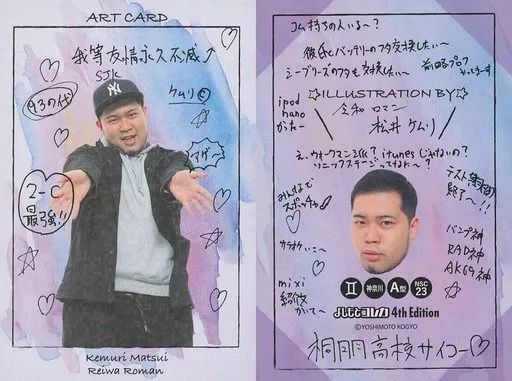 ART CARD
我等友情永久不滅
SJK
93の代
ケムリ
マザー
2-C
最強!!
Kemuri Matsui
Reiwa Roman
コム持ちの人いる〜?
彼氏とバッテリーのフタ交換したい〜
シーブリーズのフタも交換したい〜
前略プロフ
やってまーす
☆ILLUSTRATION BY☆
ipod
nano
かた〜
令和 ロマン
松井 ケムリ
え、ウォークマン派? itunesじゃないの?
ソニックステージってなに〜?
みんなで
スポッチャ
テスト
終了〜!!
カラオケいこ〜
バンプ神
RAD神
AK69神
mixi
かいて〜
神奈川
A型
NSC
23
4th Edition
©YOSHIMOTO KOGYO
桐朋高校サイコー♡